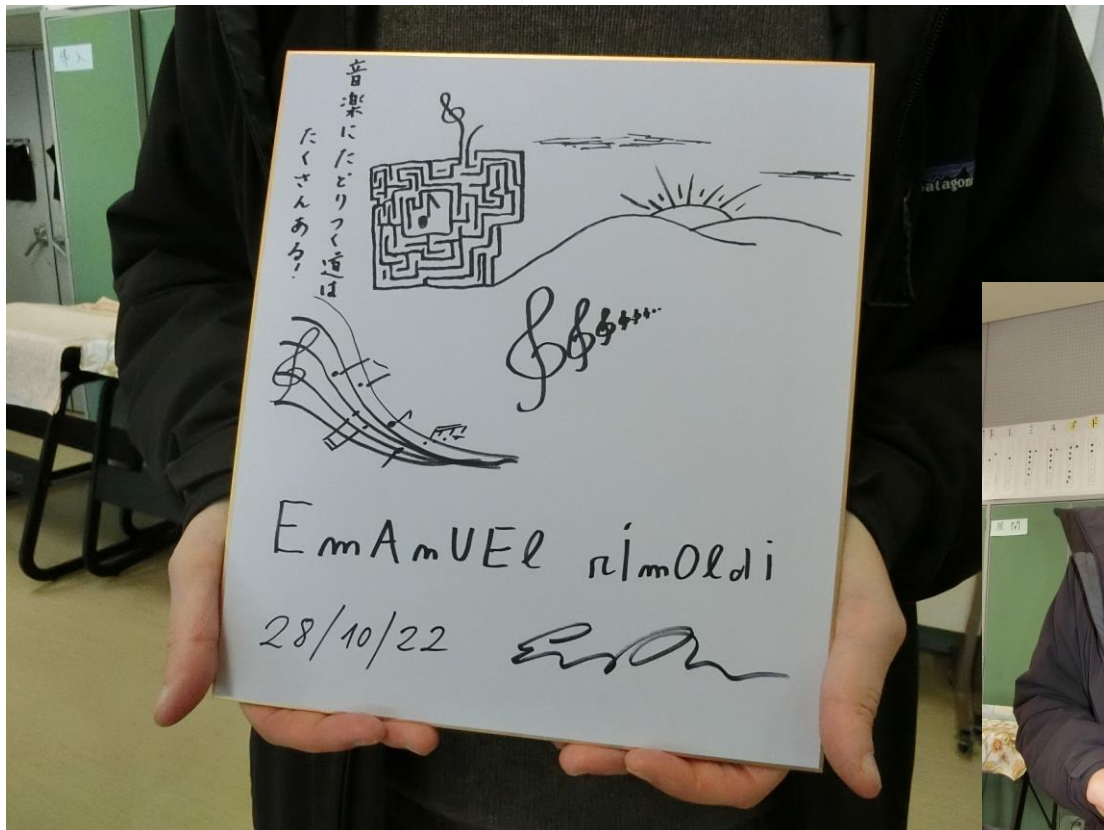 音楽にたどりつく道は
たくさんある!
EmAnUEl rimOldi
28/10/22
patagon
導入
展開